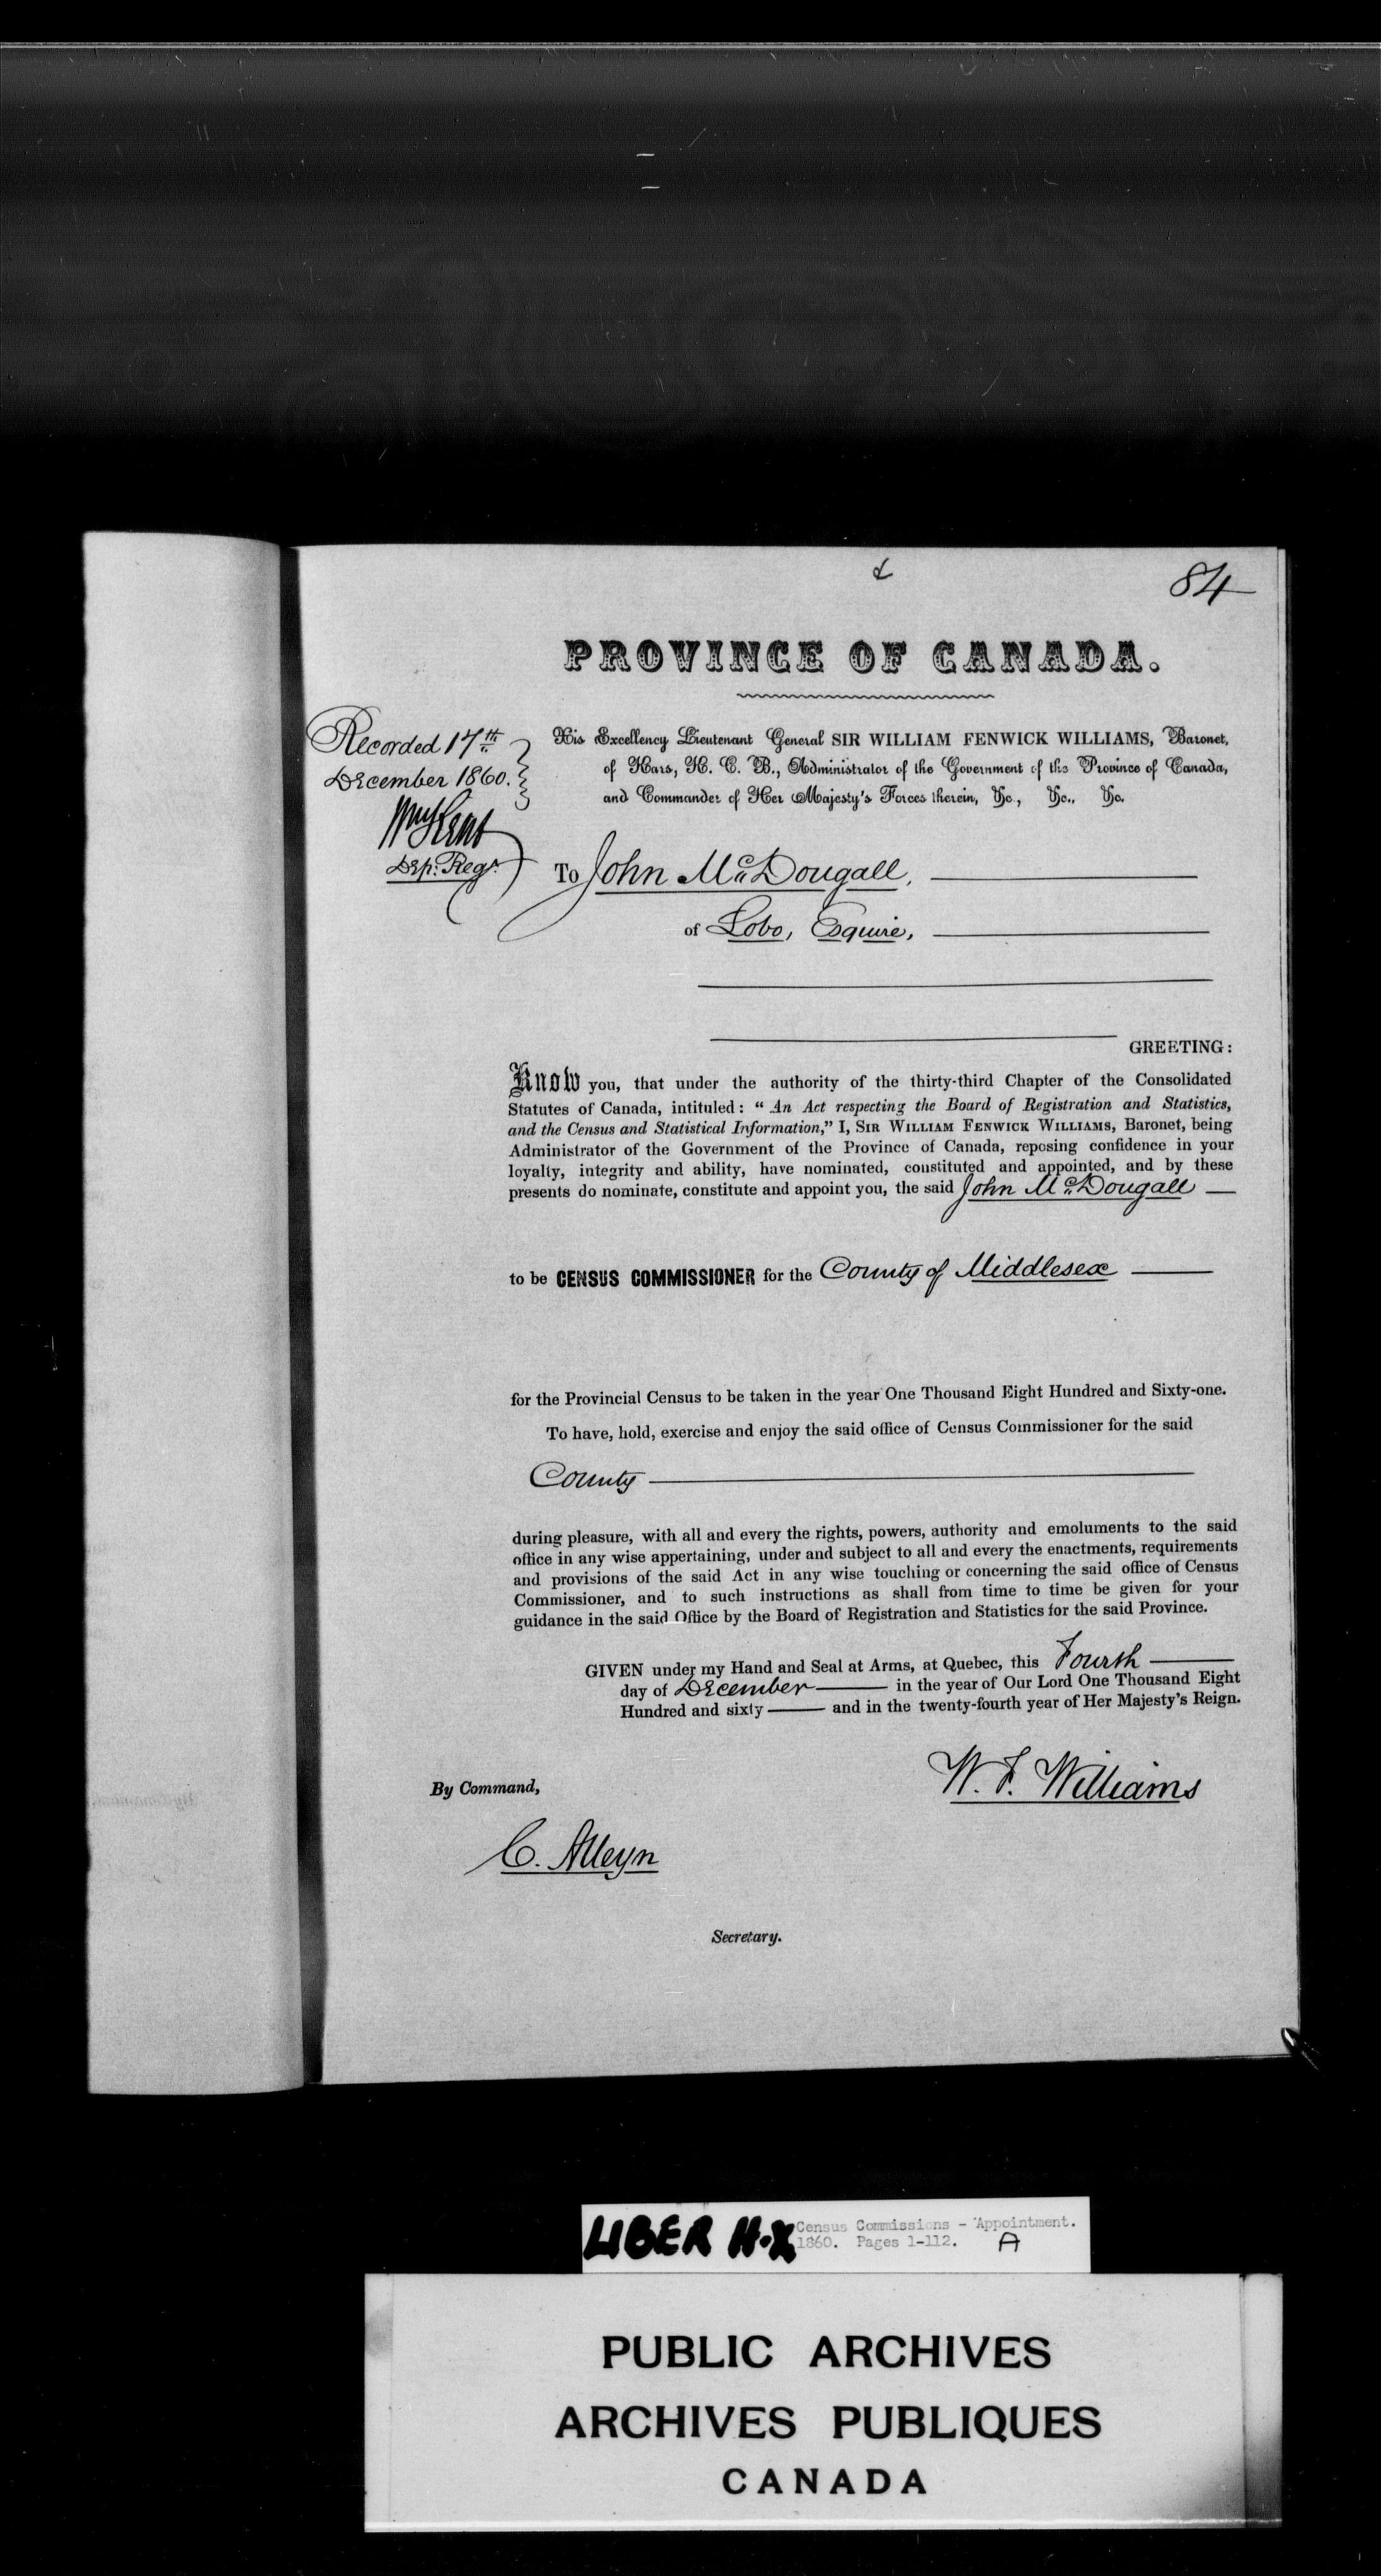 84
PROVINCE OF CANADA.
Recorded 17th
December 1860.
Wm Kent
Dep: Regr.
His Excellency Lieutenant General SIR WILLIAM FENWICK WILLIAMS, Baronet,
of Kars, K. C. B., Administrator of the Government of the Province of Canada,
and Commander of Her Majesty's Forces therein, &c., &c., &c.
To John McDougall,
of Lobo, Esquire,
GREETING:
Know you, that under the authority of the thirty-third Chapter of the Consolidated
Statutes of Canada, intituled: "An Act respecting the Board of Registration and Statistics,
and the Census and Statistical Information," I, SIR WILLIAM FENWICK WILLIAMS, Baronet, being
Administrator of the Government of the Province of Canada, reposing confidence in your
loyalty, integrity and ability, have nominated, constituted and appointed, and by these
presents do nominate, constitute and appoint you, the said John McDougall
to be CENSUS COMMISSIONER for the County of Middlesex
for the Provincial Census to be taken in the year One Thousand Eight Hundred and Sixty-one.
To have, hold, exercise and enjoy the said office of Census Commissioner for the said
County
during pleasure, with all and every the rights, powers, authority and emoluments to the said
office in any wise appertaining, under and subject to all and every the enactments, requirements
and provisions of the said Act in any wise touching or concerning the said office of Census
Commissioner, and to such instructions as shall from time to time be given for your
guidance in the said Office by the Board of Registration and Statistics for the said Province.
GIVEN under my Hand and Seal at Arms, at Quebec, this Fourth
day of December in the year of Our Lord One Thousand Eight
Hundred and sixty and in the twenty-fourth year of Her Majesty's Reign.
W. F. Williams
By Command,
C. Alleyn
Secretary.
LIBER H-X Census Commissions - Appointment.
1860. Pages 1-112. A
PUBLIC ARCHIVES
ARCHIVES PUBLIQUES
CANADA